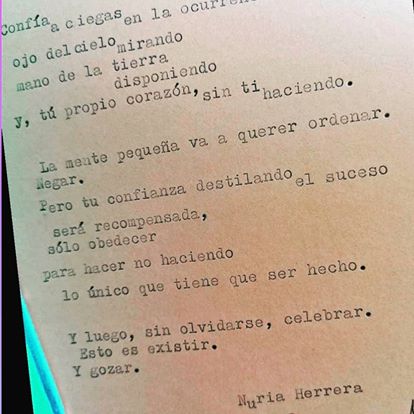 Confía a ciegas en la ocurren
ojo del cielo mirando
mano de la tierra
disponiendo
y, tú propio corazón, sin ti haciendo.
La mente pequeña va a querer ordenar.
Negar.
Pero tu confianza destilando el suceso
será recompensada,
sólo obedecer
para hacer no haciendo
lo único que tiene que ser hecho.
Y luego, sin olvidarse, celebrar.
Esto es existir.
Y gozar.
Nuria Herrera